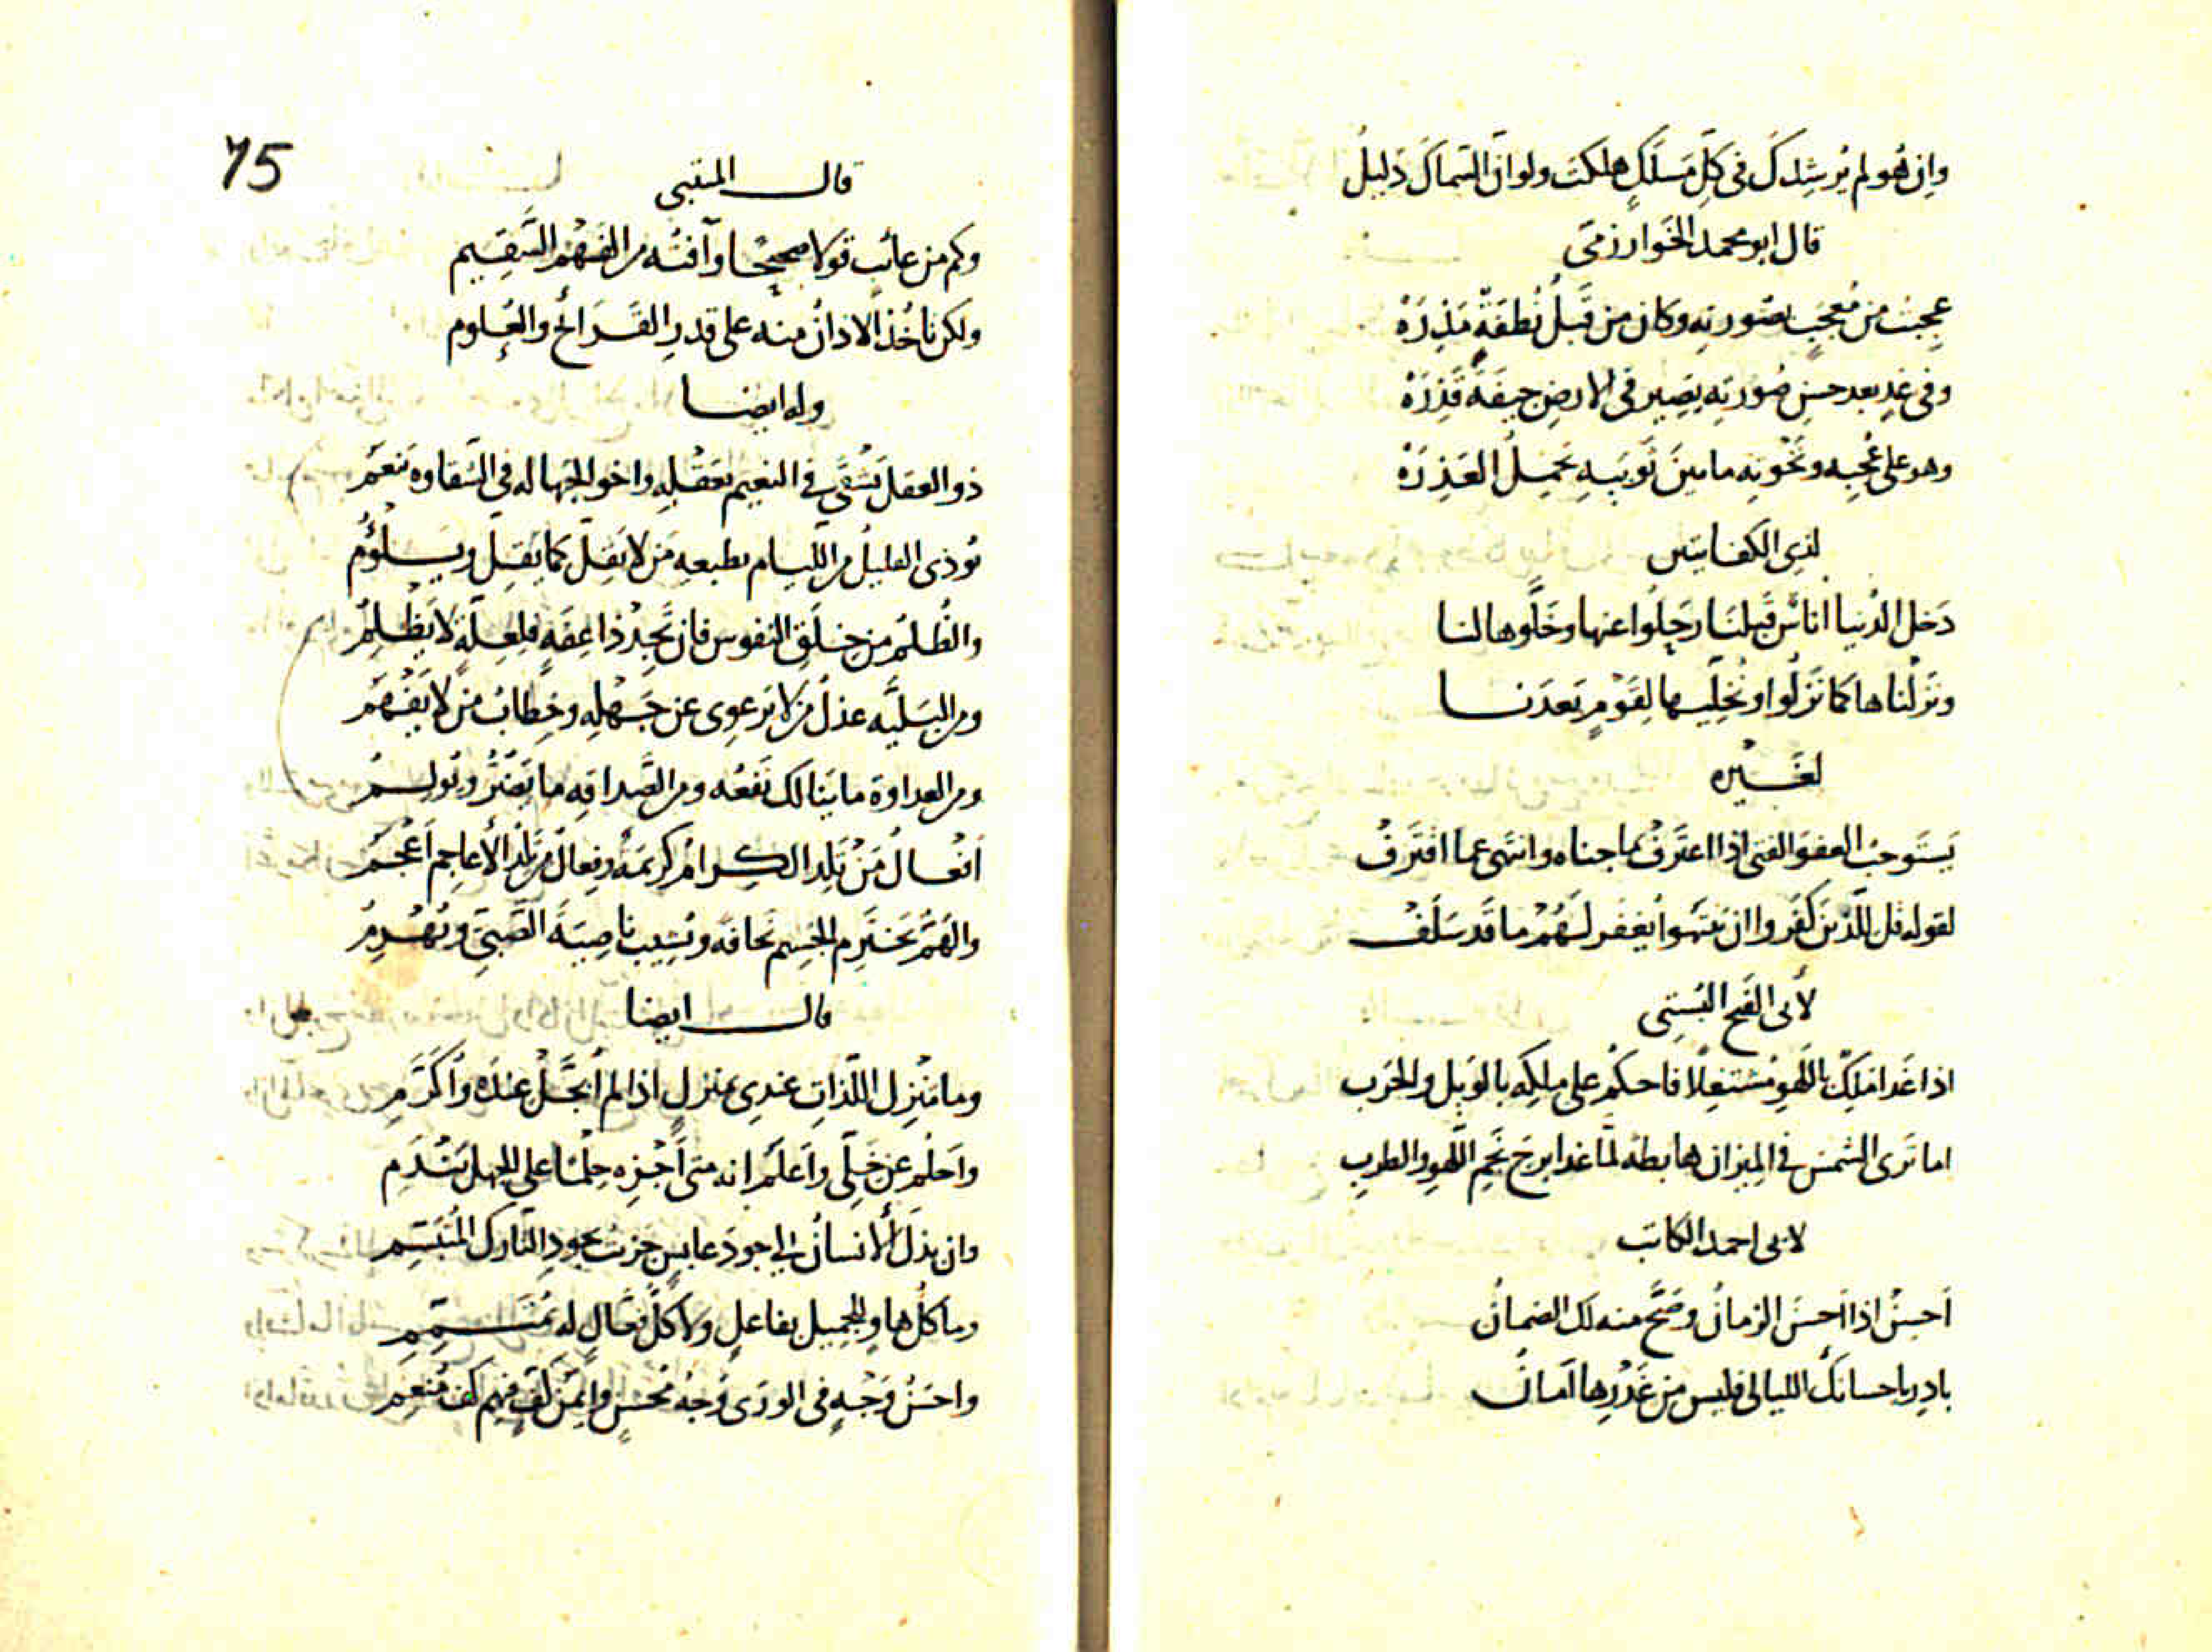 وان هو لم يرشدك في كل مسلك هلكت ولو ان السماك دليل
قال ابو محمد الخوارزمي
عجبت من معجب بصورته وكان من قبل نطفة مذره
وفي غد بعد حسن صورته يصير في الارض جيفة قذره
وهو على عجبه ونخوته ما بين ثوبيه يحمل العذره
لذي الكفايتين
دخل الدنيا اناس قبلنا رحلوا عنها وخلوها لنا
ونزلناها كما نزلوا ونخليها لقوم بعدنا
لغيره
يستوجب العفو الفتى اذا اعترف بما جناه وانتهى عما اقترف
لقوله قل للذين كفروا ان ينتهوا يغفر لهم ما قد سلف
لأبي الفتح البستي
اذا غدا ملك باللهو مشتغلا فاحكم على ملكه بالويل والحرب
اما ترى الشمس في الميزان هابطة لما غدا برج نجم اللهو والطرب
لابي احمد الكاتب
أحسن اذا احسن الزمان وصح منه لك الضمان
بادر باحسانك الليالي فليس من غدرها امان
75
قال المتنبي
وكم من عائب قولا صحيحا وآفته من الفهم السقيم
ولكن تاخذ الاذان منه على قدر القرائح والعلوم
وله ايضا
ذو العقل يشقى في النعيم بعقله واخو الجهاله في الشقاوه ينعم
يوذى القليل من الليام بطبعه من لا يقل كما يقل ويلؤم
والظلم من خلق النفوس فان تجد ذا عفة فلعلة لا يظلم
ومن البلية عذل من لا يرعوي عن جهله وخطاب من لا يفهم
ومن العداوة ما ينالك نفعه ومن الصداقه ما يضر ويولم
افعال من تلد الكرام كريمة وفعال من تلد الأعاجم أعجم
والهم يخترم الجسم نحافه ويشيب ناصية الصبي ويهرم
قال ايضا
وما منزل اللذات عندي بمنزل اذا لم أبجل عنده وأكرم
واحلم عن خلي وأعلم انه متى أجزه حلما على الجهل يندم
وان بذل الأنسان لي جود عابس جزيت بجود التارك المتبسم
وما كل هاو للجميل بفاعل ولا كل فعال له بمتمم
واحسن وجه في الورى وجه محسن وايمن كف فيهم كف منعم